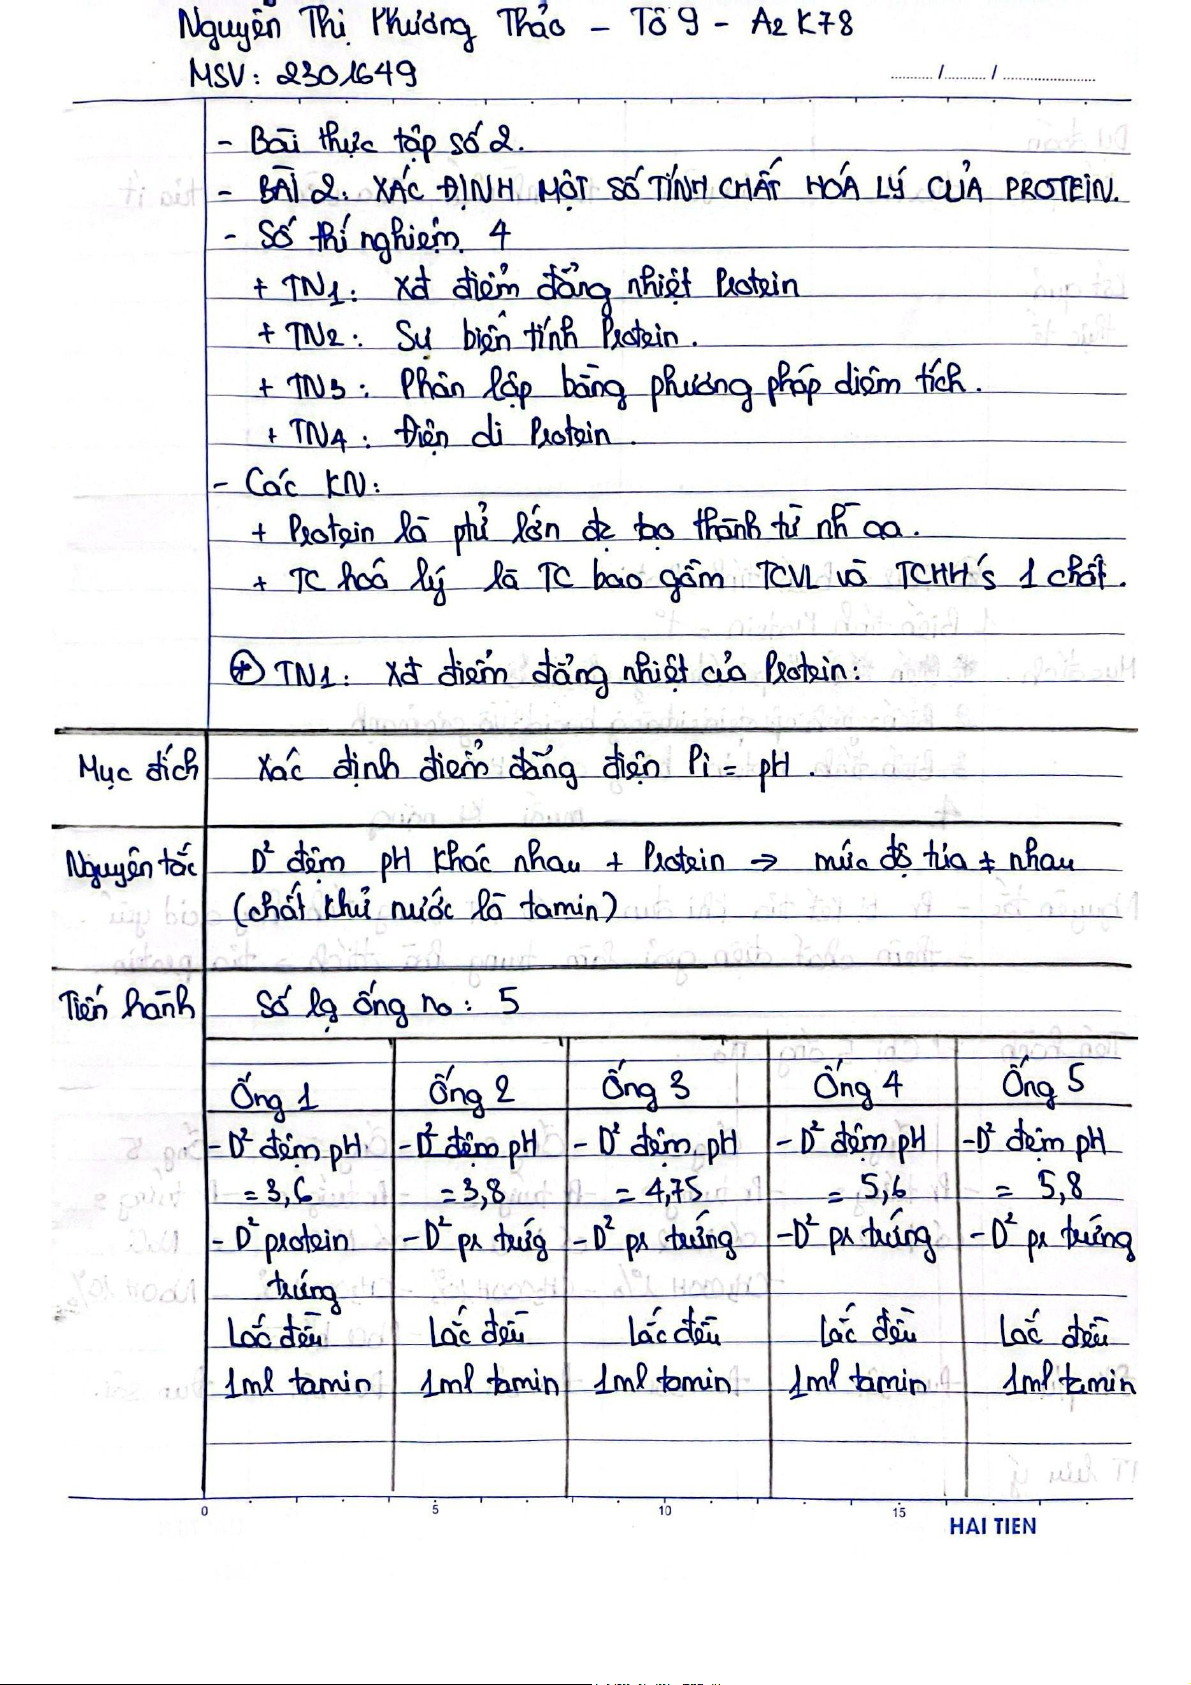 Nguyễn Thị Phương Thảo - Tổ 9 - A2 K78
MSV: 2301649
........../........../.......................
- Bài thực tập số 2.
- BÀI 2. XÁC ĐỊNH MỘT SỐ TÍNH CHẤT HOÁ LÝ CỦA PROTEIN.
- Số thí nghiệm. 4
+ TN1: Xđ điểm đẳng nhiệt Protein
+ TN2: Sự biến tính Protein.
+ TN3: Phân lập bằng phương pháp diêm tích.
+ TN4: Điện di Protein.
- Các KN:
+ Protein là ptử lớn đc tạo thành từ nh~ aa.
+ TC hoá lý là TC bao gồm TCVL và TCHH's 1 chất.
⊕ TN1: Xđ điểm đẳng nhiệt của Protein:
Mục đích Xác định điểm đẳng điện Pi = pH.
Nguyên tắc D² đệm pH khác nhau + Protein → mức độ tủa ≠ nhau
(chất khử nước là tamin)
Tiến hành Số lg ống no: 5
Ống 1 Ống 2 Ống 3 Ống 4 Ống 5
- D² đệm pH - D² đệm pH - D² đệm pH - D² đệm pH - D² đệm pH
= 3,6 = 3,8 = 4,75 = 5,6 = 5,8
- D² protein - D² pr trứg - D² pr trứng - D² pr trứng - D² pr trứng
trứng
Lắc đều Lắc đều Lắc đều Lắc đều Lắc đều
1ml tamin 1ml tamin 1ml tamin 1ml tamin 1ml tamin
0 5 10 15
HAI TIEN